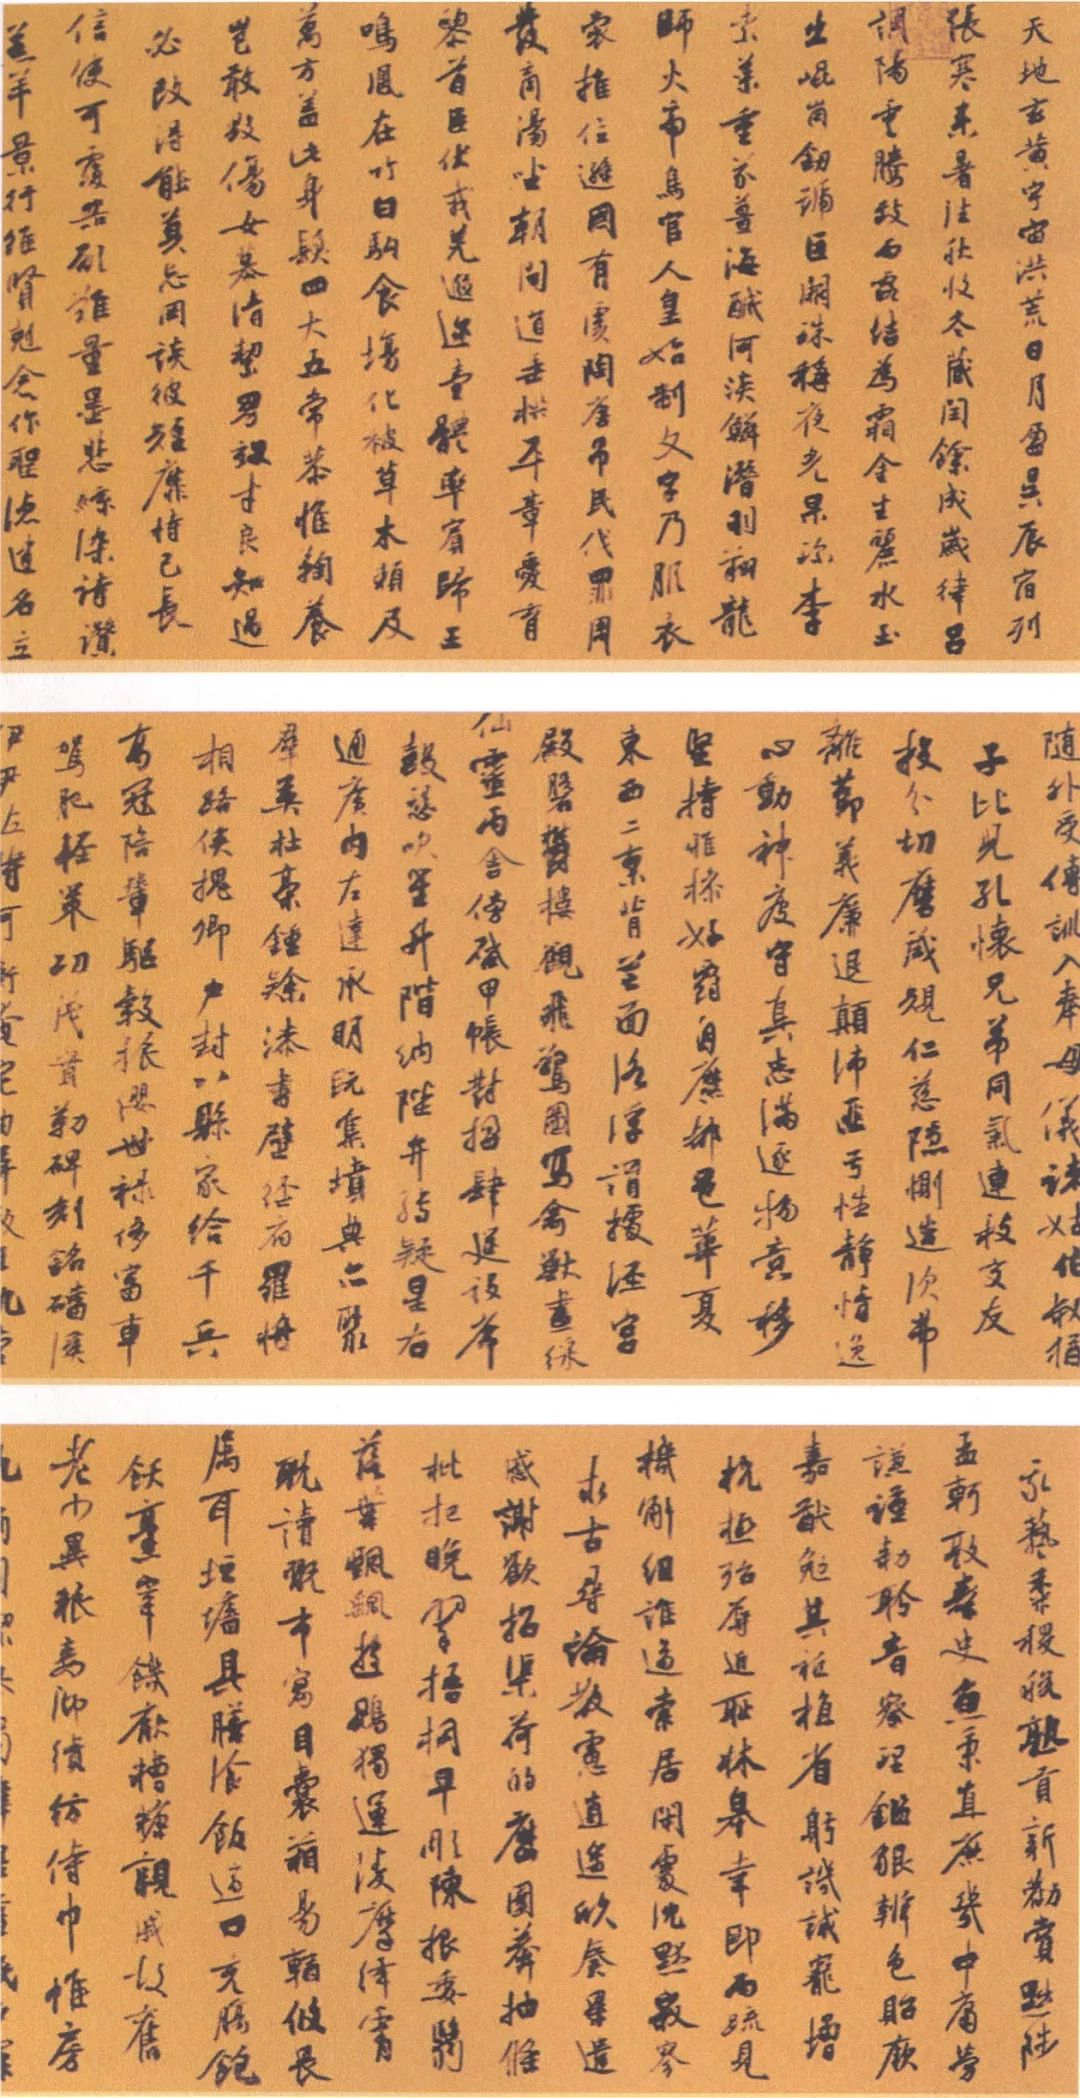 天地玄黃宇宙洪荒日月盈昃辰宿列
張寒来暑往秋收冬藏閏餘成歲律呂
調陽雲騰致雨露結為霜金生麗水玉
出崐崗劔號巨闕珠稱夜光果珍李
柰菜重芥薑海醎河淡鱗潛羽翔龍
師火帝鳥官人皇始制文字乃服衣
裳推位遜國有虞陶唐弔民伐罪周
發商湯坐朝問道垂拱平章愛育
黎首臣伏戎羌遐迩壹體率賓歸王
鳴鳳在竹白駒食場化被草木賴及
萬方蓋此身髮四大五常恭惟鞠養
豈敢毀傷女慕清潔男效才良知過
必改得能莫忘罔談彼短靡恃己長
信使可覆器欲難量墨悲絲染詩讚
羔羊景行維賢剋念作聖德建名立
隨外受傅訓入奉母儀諸姑伯叔猶
子比兒孔懷兄弟同氣連枝交友
投分切磨箴規仁慈隱惻造次弗
離節義廉退顛沛匪虧性靜情逸
心動神疲守真志滿逐物意移
堅持雅操好爵自縻都邑華夏
東西二京背芒面洛浮渭據涇宮
殿盤鬱樓觀飛驚圖寫禽獸畫綵
仙靈丙舍傍啟甲帳對楹肆筵設席
鼓瑟吹笙升階納陛弁轉疑星右
通廣內左達承明既集墳典亦聚
群英杜稾鍾隸漆書壁經府羅將
相路俠槐卿戶封八縣家給千兵
高冠陪輦驅轂振纓世祿侈富車
駕肥輕策功茂實勒碑刻銘磻溪
伊尹佐時阿衡奄宅曲阜
我藝黍稷稅熟貢新勸賞黜陟
孟軻敦素史魚秉直庶幾中庸勞
謙謹勑聆音察理鑑貌辨色貽厥
嘉猷勉其祗植省躬譏誡寵增
抗極殆辱近恥林皋幸即兩疏見
機解組誰逼索居閑處沉默寂寥
求古尋論散慮逍遙欣奏累遣
慼謝歡招渠荷的歷園莽抽條
枇杷晚翠梧桐早彫陳根委翳
落葉飄颻遊鵾獨運淩摩絳霄
耽讀翫市寓目囊箱易輶攸畏
屬耳垣墻具膳飡飯適口充腸飽
飫烹宰饑厭糟糠親戚故舊
老少異粮妾御績紡侍巾帷房